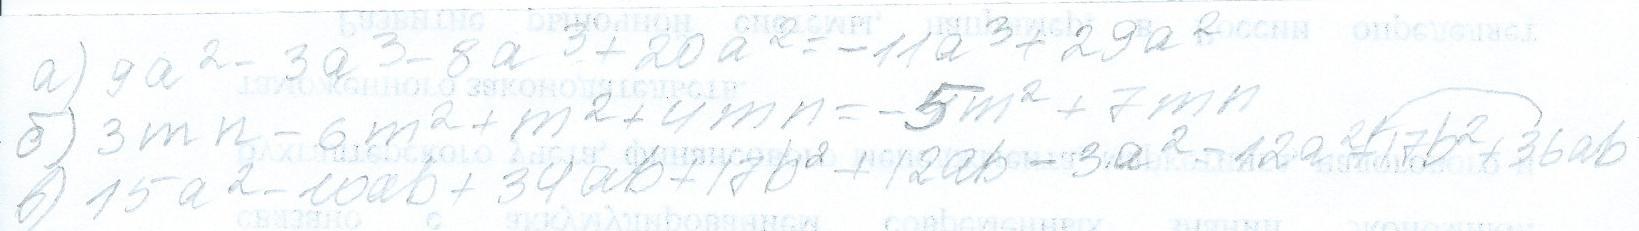 а) 9a² - 3a³ - 8a³ + 20a² = -11a³ + 29a²
б) 3mn - 6m² + m² + 4mn = -5m² + 7mn
в) 15a² - 10ab + 34ab + 17b² + 12ab - 3a² - 12a² + 17b² + 36ab